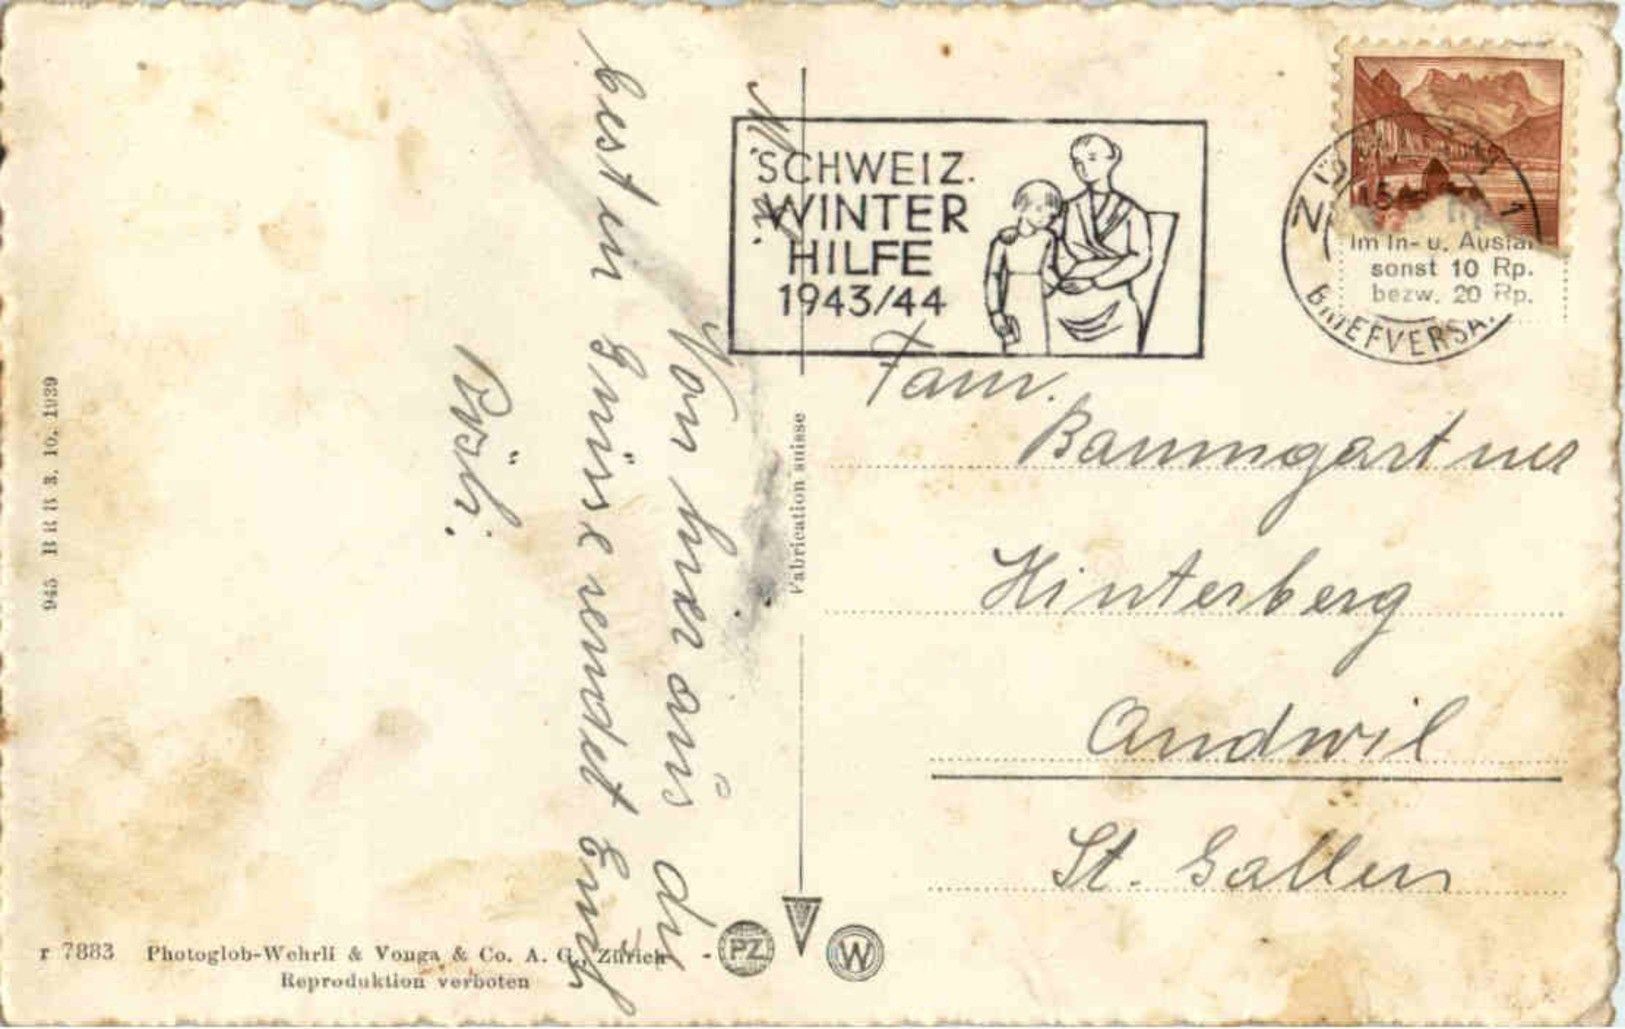 SCHWEIZ.
WINTER
HILFE
1943/44
BRIEFVERSA.
Im In- u. Auslan
sonst 10 Rp.
bezw. 20 Rp.
Fam.
Baumgartner
Hinterberg
Andwil
St. Gallen
M. L.
Von hier aus die
besten Grüsse sendet Euch
Fabrication suisse
945 B R B 3. 10. 1939
r 7883 Photoglob-Wehrli & Vouga & Co. A. G., Zürich
Reproduktion verboten
PZ
W